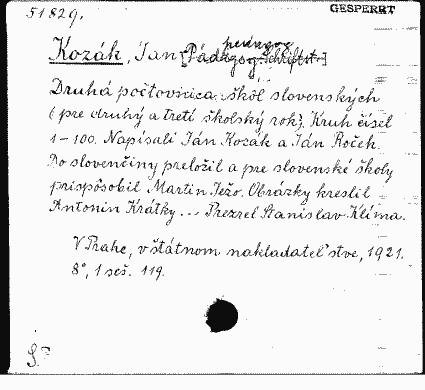 51829.
GESPERRT
pedagog
Kozák, Jan [Pädagog. Schriftst.]
Druhá počtovnica škôl slovenských
(pre druhý a tretí školský rok). Kruh čísil
1-100. Napísali Ján Kozák a Ján Roček.
Do slovenčiny preložil a pre slovenské školy
prispôsobil Martin Ježo. Obrázky kreslil
Antonin Krátky ... Prezrel Stanislav Klíma.
V Prahe, v štátnom nakladateľstve, 1921.
8°, 1 seš. 119.